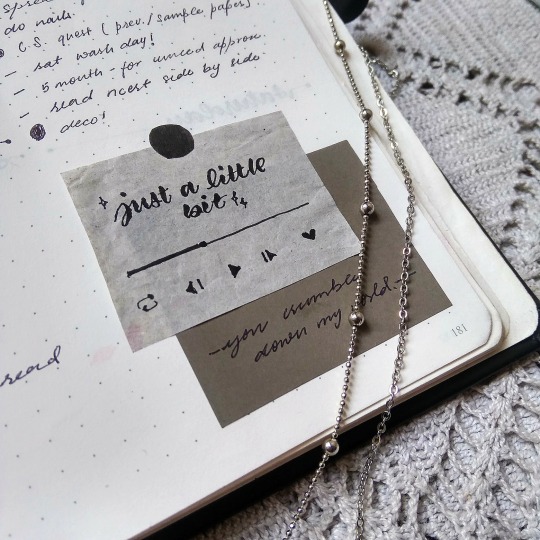 do nails.
C.S. quest (prev./sample paper)
- sat wash day!
- 5 month - for umeed approx.
- read ncert side by side
deco!
just a little
bit
- you crumble
down my world -
read
181